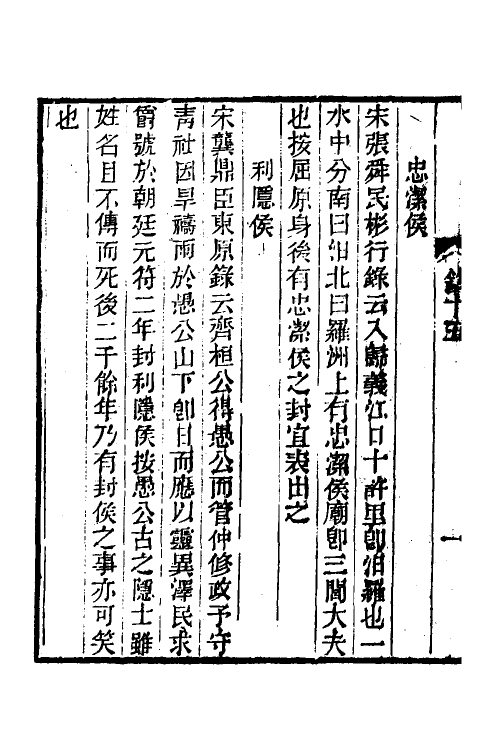 忠潔侯
宋張舜民彬行錄云入歸義江口十許里卽汨羅也一
水中分南曰汨北曰羅洲上有忠潔侯廟卽三閭大夫
也按屈原身後有忠潔侯之封宜表出之
利隱侯
宋龔鼎臣東原錄云齊桓公得愚公而管仲修政予守
青社因旱禱雨於愚公山下卽日而應以靈異澤民求
爵號於朝廷元符二年封利隱侯按愚公古之隱士雖
姓名且不傳而死後二千餘年乃有封侯之事亦可笑
也